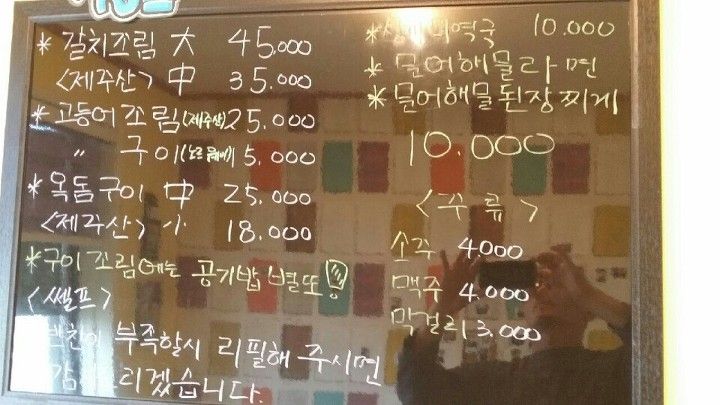 * 갈치조림 大 45,000
<제주산> 中 35.000
* 고등어조림(제주산) 25.000
" 구이(노르웨이) 5,000
* 옥돔구이 中 25,000
<제주산> 小 18.000
*구이 조림에는 공기밥 별또!
<쎌프>
반찬이 부족할시 리필해 주시면
감 드리겠습니다.
* 미역국 10.000
* 문어해물라면
* 문어해물된장찌게
10.000
<주류>
소주 4.000
맥주 4.000
막걸리 3,000